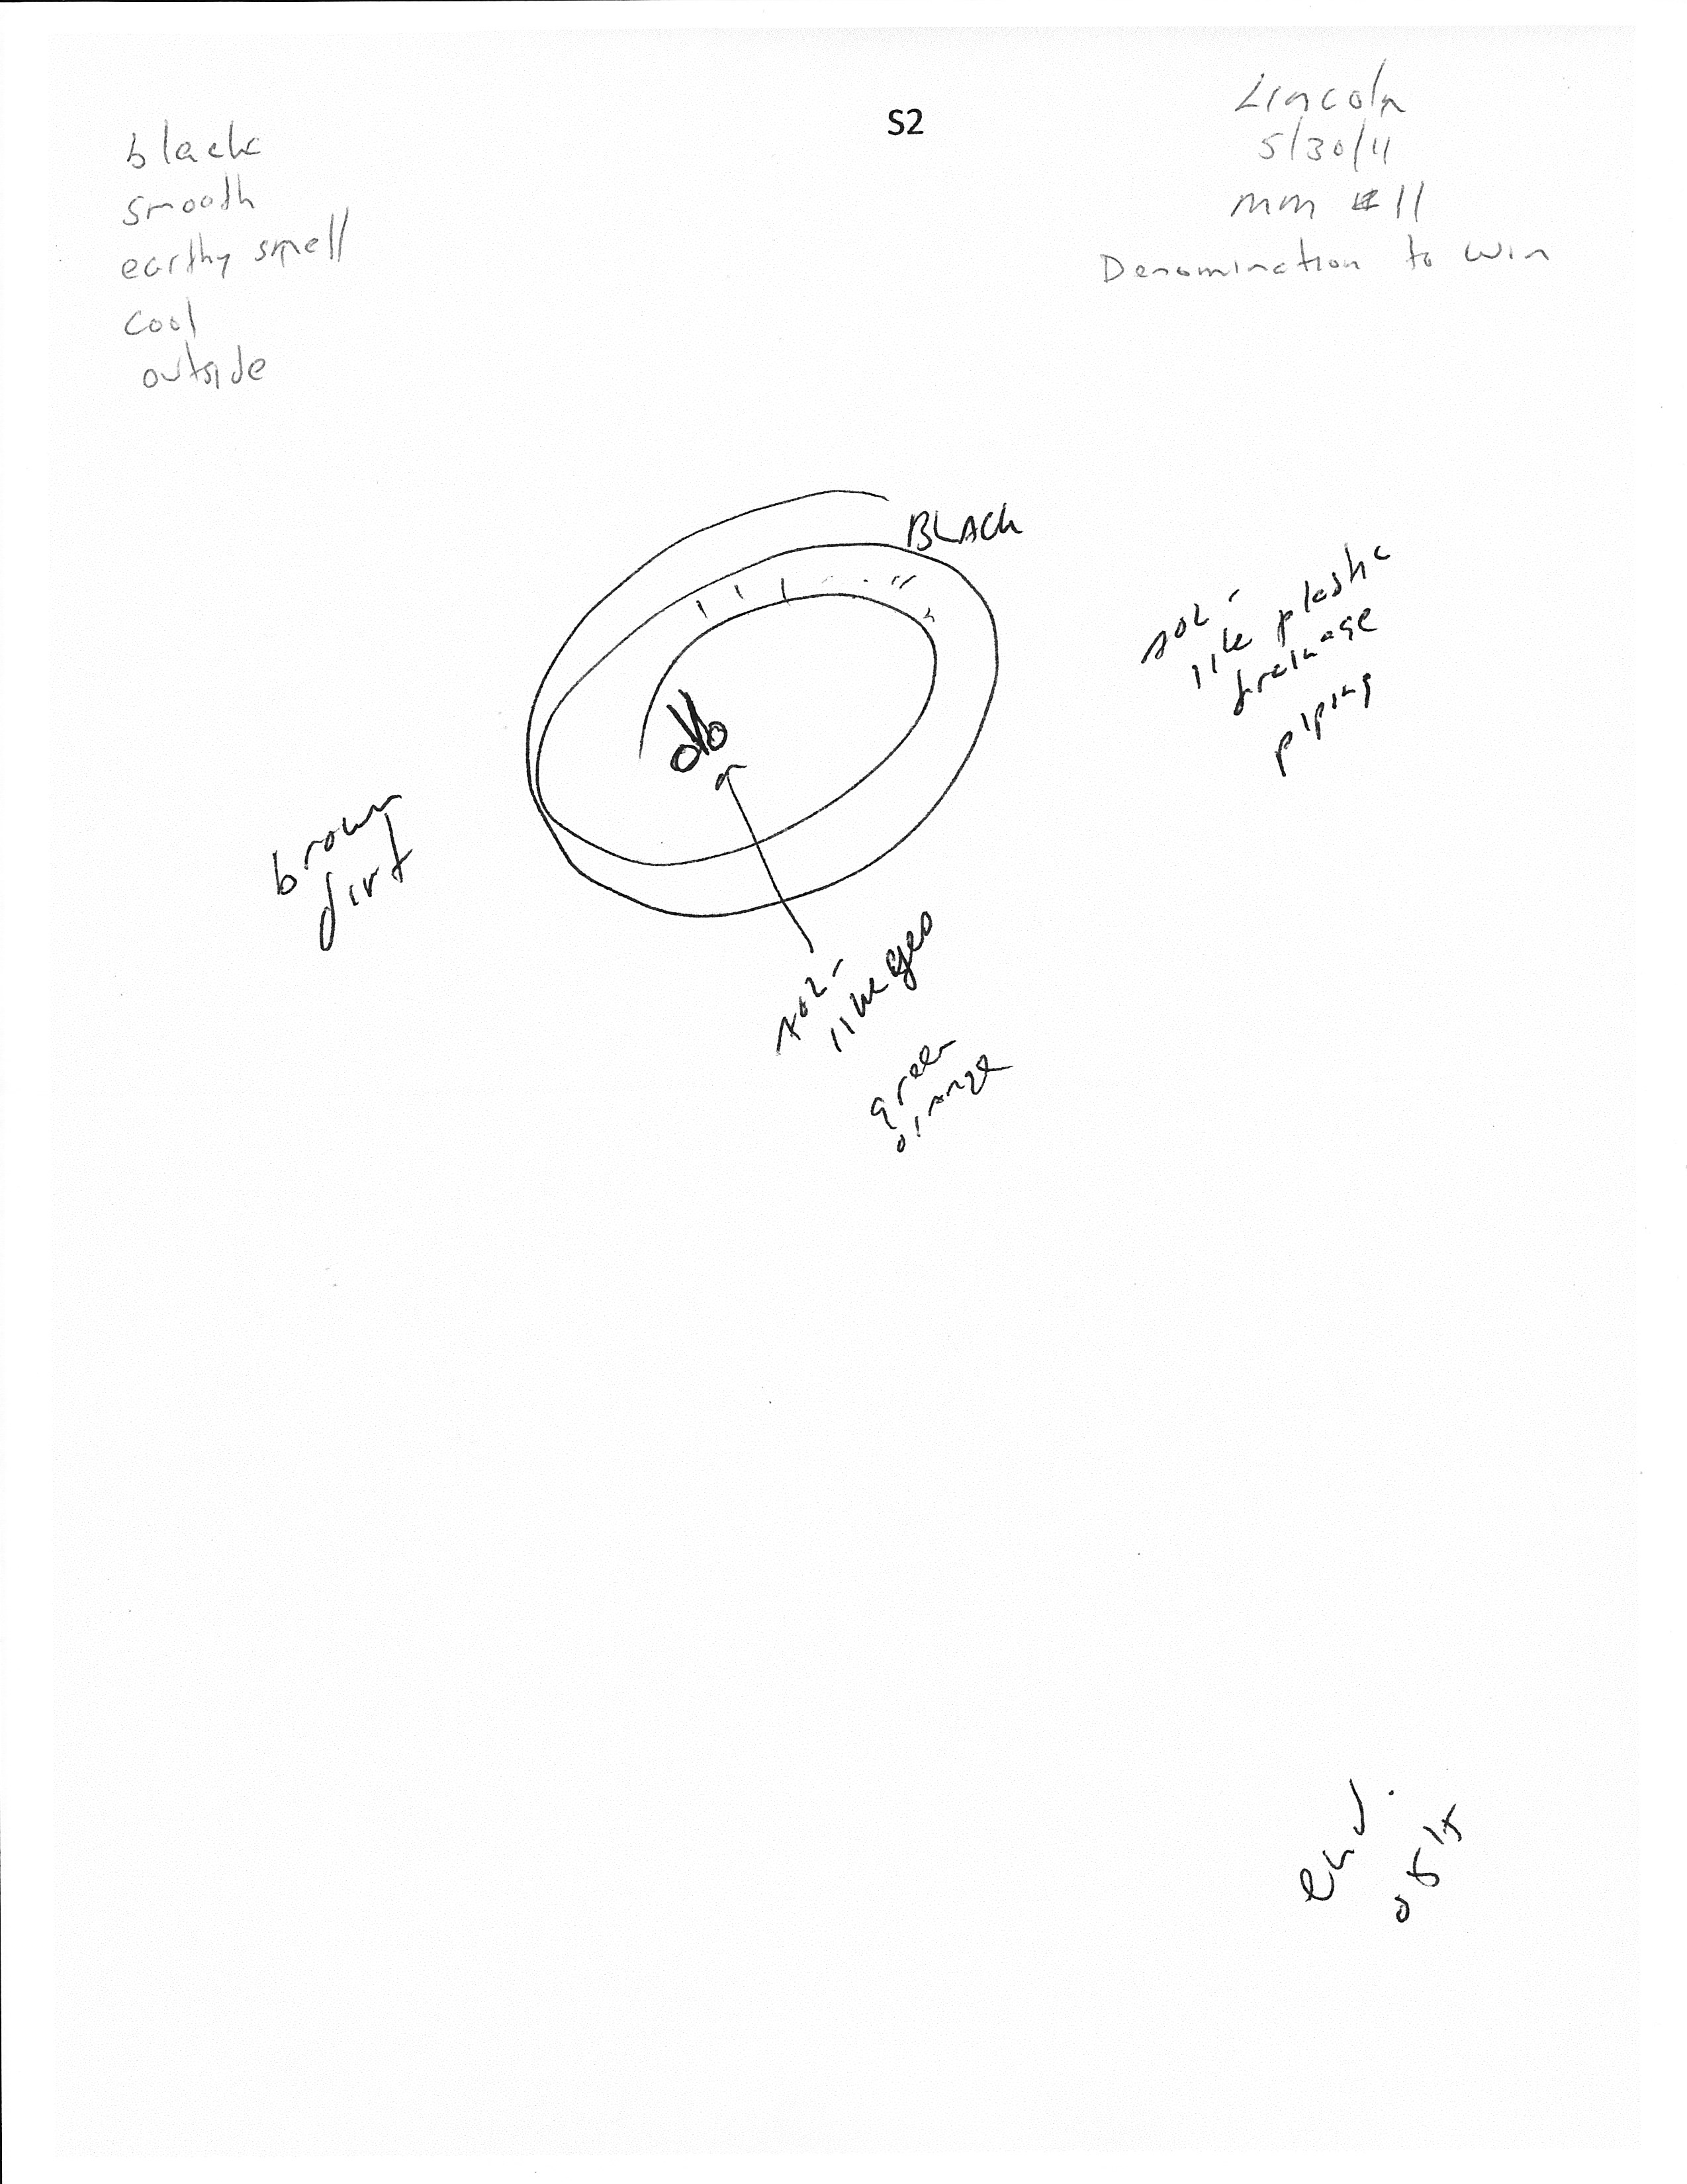 S2
Lincoln
5/30/11
mm #11
Denomination to win
black
smooth
earthy smell
cool
outside
BLACK
AOL-
like plastic
drainage
piping
brown
dirt
AOL-
like
green
orange
end.
0815